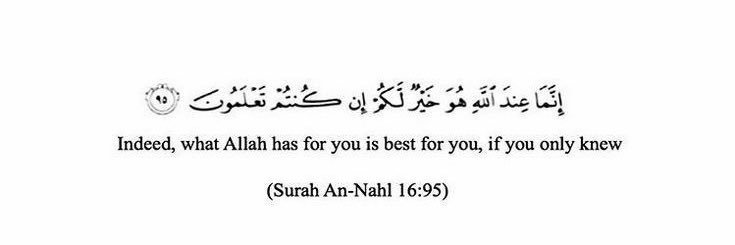 إِنَّمَا عِندَ ٱللَّهِ هُوَ خَيْرٌ لَّكُمْ إِن كُنتُمْ تَعْلَمُونَ ٩٥
Indeed, what Allah has for you is best for you, if you only knew
(Surah An-Nahl 16:95)